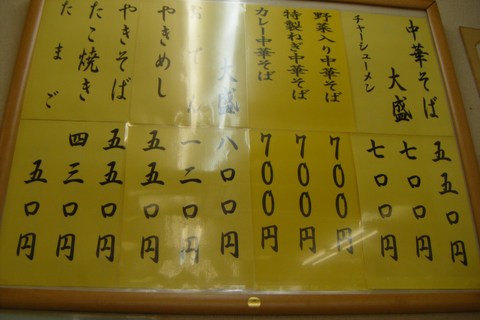 中華そば
五五〇円
大盛
七〇〇円
チャーシューメン
七〇〇円
野菜入り中華そば
700円
特製ねぎ中華そば
700円
カレー中華そば
700円
大盛
八〇〇円
おでん
一二〇円
やきめし
五五〇円
やきそば
五五〇円
たこ焼き
四三〇円
たまご
五〇円